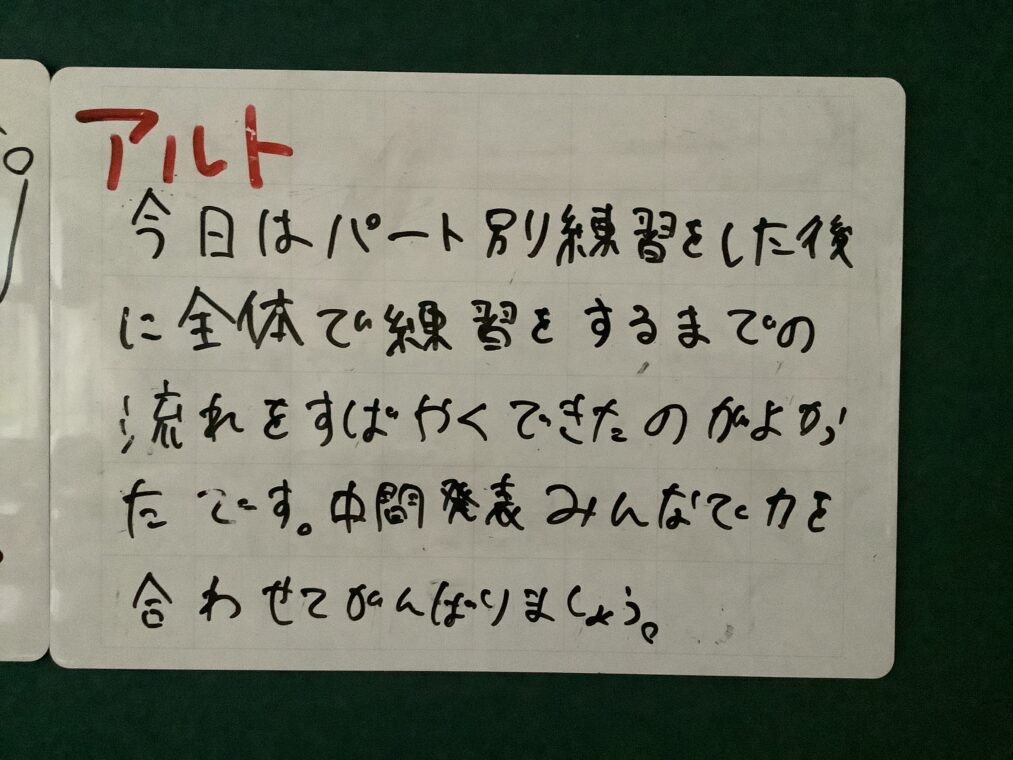 アルト
今日はパート別練習をした後
に全体で練習をするまでの
流れをすばやくできたのがよかっ
たです。中間発表みんなで力を
合わせてがんばりましょう。